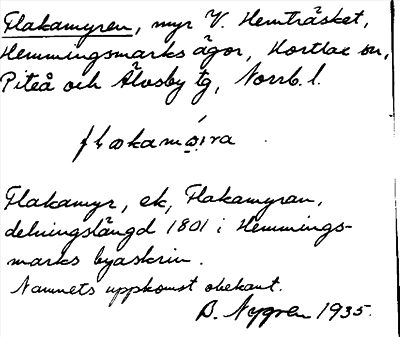 Flakamyren, myr V. Hemträsket,
Hemmingsmarks ägor, Hortlax sn,
Piteå och Älvsby tg, Norrb. l.
flakamǫ́ıra
Flakamyr, ek, Flakamyran,
delningslängd 1801 i Hemmings-
marks byaskrin.
Namnets uppkomst obekant.
B. Nygren 1935.